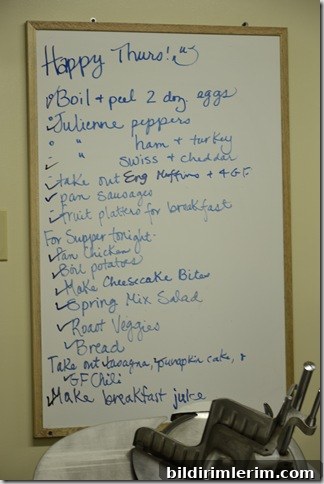 Happy Thurs!
Boil + peel 2 doz eggs
Julienne peppers
" ham + turkey
" swiss + cheddar
take out Eng Muffins + 4 G.F.
pan sausages
fruit platters for breakfast
For Supper tonight-
Pan Chicken
Boil potatoes
Make Cheesecake Bites
Spring Mix Salad
Roast Veggies
Bread
Take out Lasagna, pumpkin cake, +
GF Chili
Make breakfast juice
bildirimlerim.com